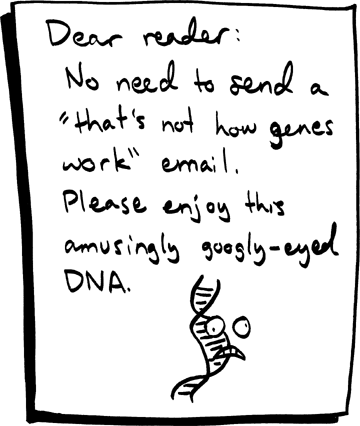 Dear reader:
No need to send a
"that's not how genes
work" email.
Please enjoy this
amusingly googly-eyed
DNA.